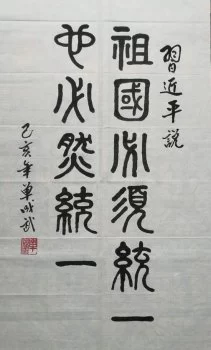 習近平說
祖國必須統一
也必然統一
己亥年單成武